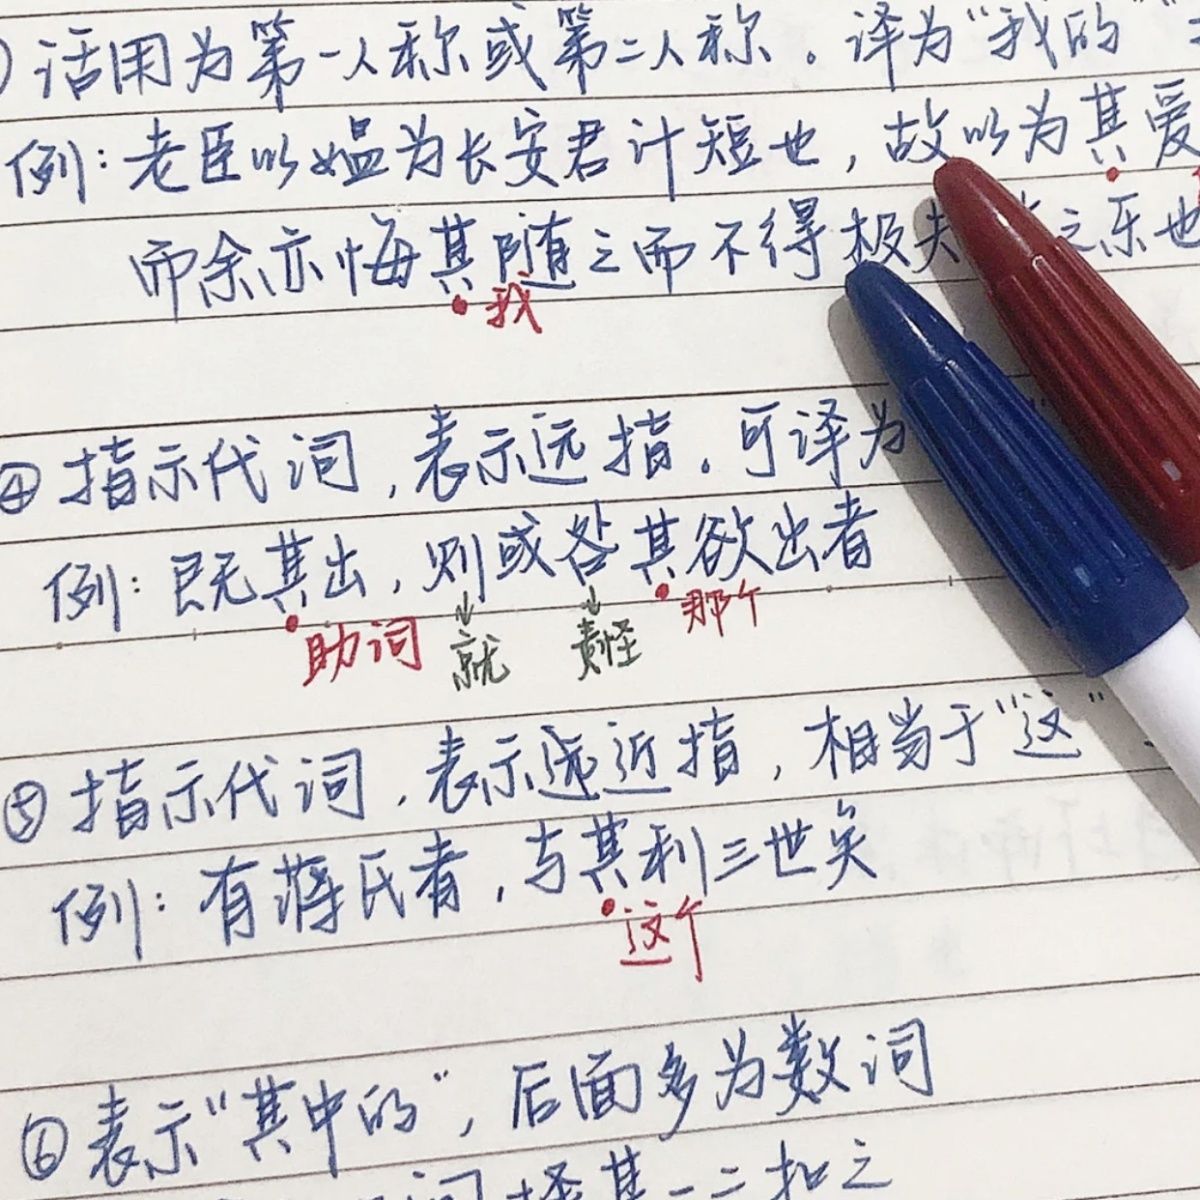 )活用为第一人称或第二人称。译为“我的”
例：老臣以媪为长安君计短也，故以为其爱
而余亦悔其随之而不得极夫之乐也
我
④指示代词，表示远指。可译为
例：既其出，则或咎其欲出者
助词 就 责怪 那个
⑤指示代词，表示近指，相当于“这”
例：有蒋氏者，与其利三世矣
这个
⑥表示“其中的”，后面多为数词
其一二扣之